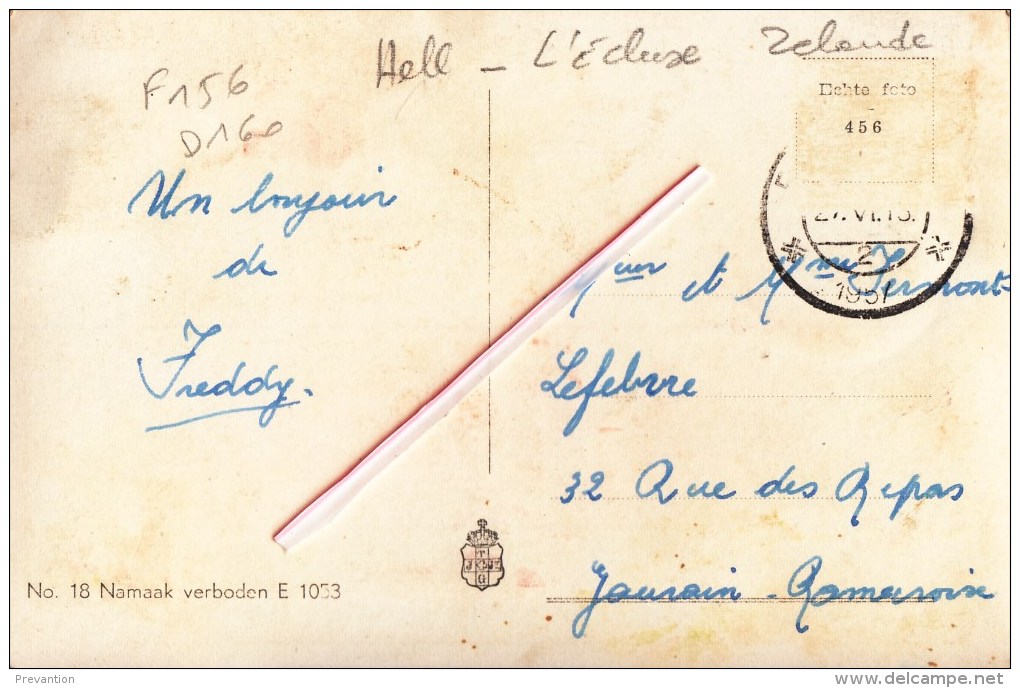 Hell - L'Écluse Zélande
F156
D160
Echte foto
456
27.VI.13.
2
1957
Un bonjour
de
Freddy.
et Mme Fermont-
Lefebvre
32 Rue des Repas
Gaurain - Ramecroix
No. 18 Namaak verboden E 1053
Prevantion
delcampe.net